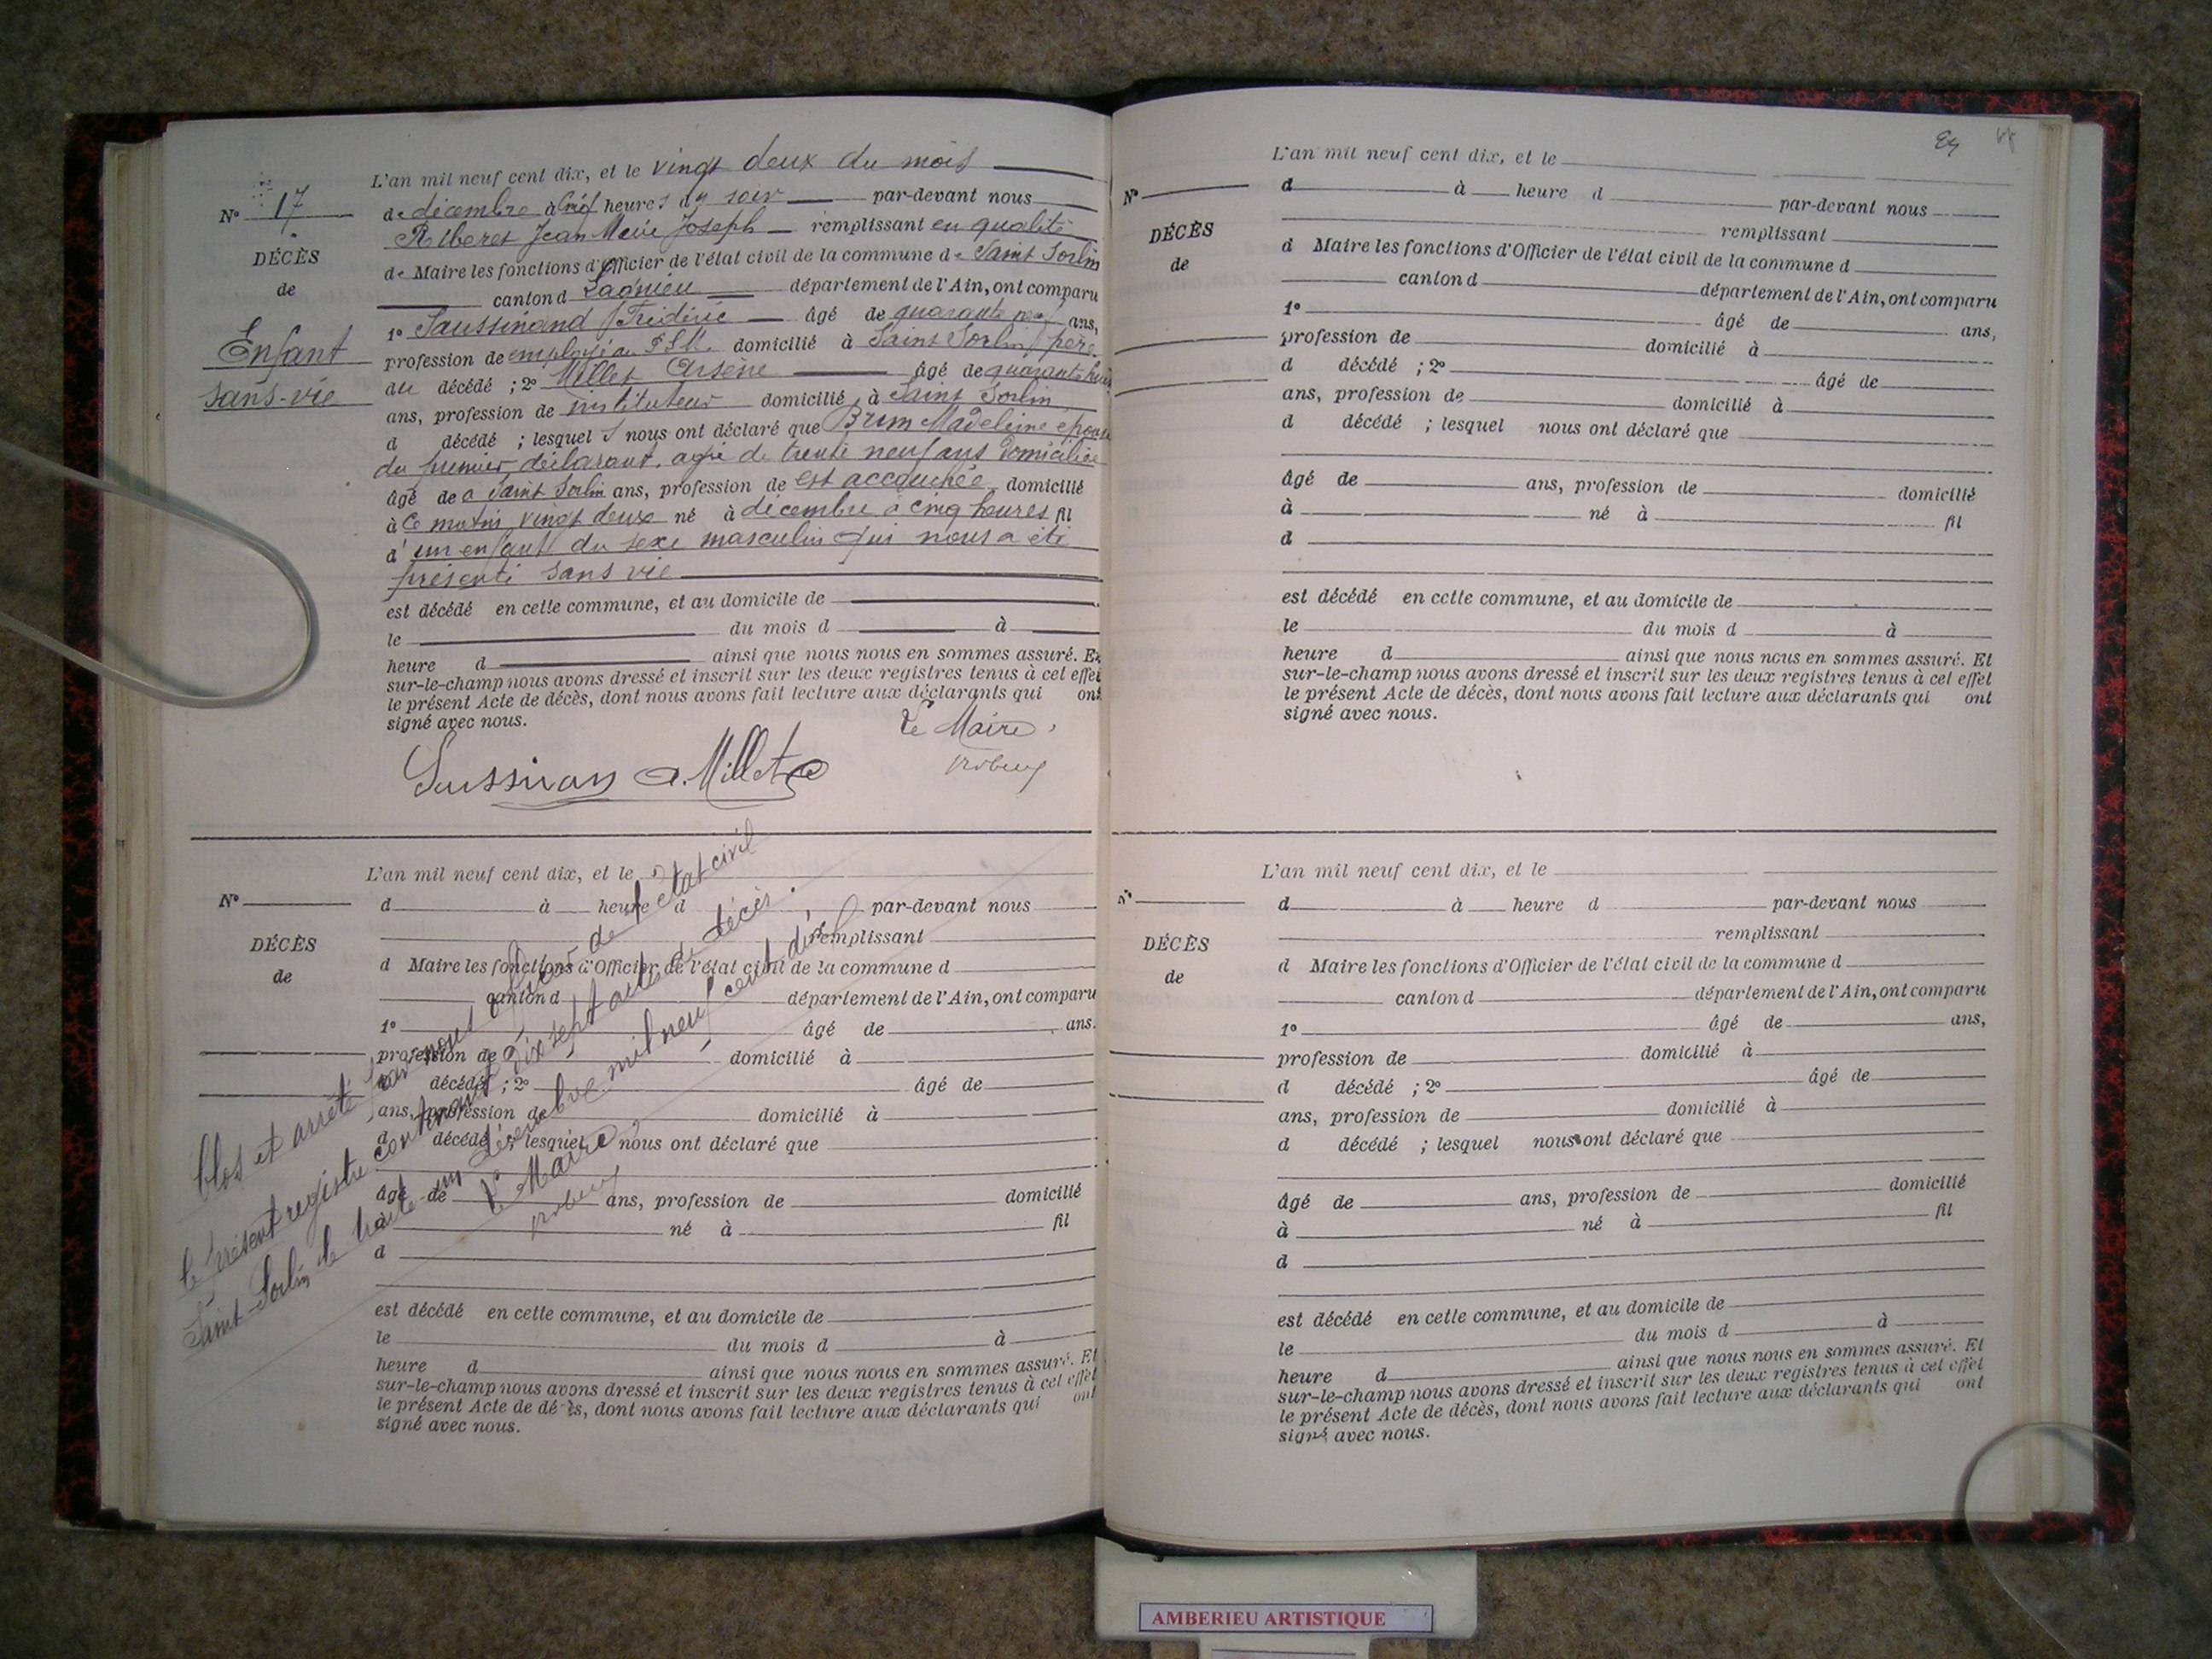 L'an mil neuf cent dix, et le vingt deux du mois
N° 17
de décembre à cinq heures du soir par-devant nous
Jean Marie Joseph remplissant en qualité
DÉCÈS
de Maire les fonctions d'Officier de l'état civil de la commune de Saint Sorlin
de
canton d Lagnieu département de l'Ain, ont comparu
1° Frédéric âgé de quarante neuf ans,
Enfant
profession de employé au P.L.M. domicilié à Saint Sorlin père
sans-vie
du décédé ; 2° Millet Arsène âgé de quarante huit
ans, profession de instituteur domicilié à Saint Sorlin
d décédé ; lesquels nous ont déclaré que Madeleine épouse
du premier déclarant, agée de trente neuf ans domiciliée
âgé de a Saint Sorlin ans, profession de est accouchée domicilié
à ce matin vingt deux né à décembre à cinq heures fil
d'un enfant du sexe masculin qui nous a été
présenté sans vie
est décédé en cette commune, et au domicile de
le du mois d à
heure d ainsi que nous nous en sommes assuré. Et
sur-le-champ nous avons dressé et inscrit sur les deux registres tenus à cet effet
le présent Acte de décès, dont nous avons fait lecture aux déclarants qui ont
signé avec nous.
Le Maire,
A. Millet
L'an mil neuf cent dix, et le
N°
d à heure d par-devant nous
remplissant
DÉCÈS
d Maire les fonctions d'Officier de l'état civil de la commune d
de
canton d département de l'Ain, ont comparu
1° âgé de ans.
profession de domicilié à
décédé ; 2° âgé de
ans, profession de domicilié à
d décédé ; lesquel nous ont déclaré que
âgé de ans, profession de domicilié
à né à fil
d
est décédé en cette commune, et au domicile de
le du mois d à
heure d ainsi que nous nous en sommes assuré. Et
sur-le-champ nous avons dressé et inscrit sur les deux registres tenus à cet effet
le présent Acte de décès, dont nous avons fait lecture aux déclarants qui ont
signé avec nous.
Clos et arrêté par nous officier de l'état civil
le présent registre contenant dix sept actes de décès.
Saint-Sorlin, le trente un décembre mil neuf cent dix
Le Maire,
L'an mil neuf cent dix, et le
N°
d à heure d par-devant nous
remplissant
DÉCÈS
d Maire les fonctions d'Officier de l'état civil de la commune d
de
canton d département de l'Ain, ont comparu
1° âgé de ans,
profession de domicilié à
d décédé ; 2° âgé de
ans, profession de domicilié à
d décédé ; lesquel nous ont déclaré que
âgé de ans, profession de domicilié
à né à fil
d
est décédé en cette commune, et au domicile de
le du mois d à
heure d ainsi que nous nous en sommes assuré. Et
sur-le-champ nous avons dressé et inscrit sur les deux registres tenus à cet effet
le présent Acte de décès, dont nous avons fait lecture aux déclarants qui ont
signé avec nous.
L'an mil neuf cent dix, et le
N°
d à heure d par-devant nous
remplissant
DÉCÈS
d Maire les fonctions d'Officier de l'état civil de la commune d
de
canton d département de l'Ain, ont comparu
1° âgé de ans,
profession de domicilié à
d décédé ; 2° âgé de
ans, profession de domicilié à
d décédé ; lesquel nous ont déclaré que
âgé de ans, profession de domicilié
à né à fil
d
est décédé en cette commune, et au domicile de
le du mois d à
heure d ainsi que nous nous en sommes assuré. Et
sur-le-champ nous avons dressé et inscrit sur les deux registres tenus à cet effet
le présent Acte de décès, dont nous avons fait lecture aux déclarants qui ont
signé avec nous.
AMBERIEU ARTISTIQUE